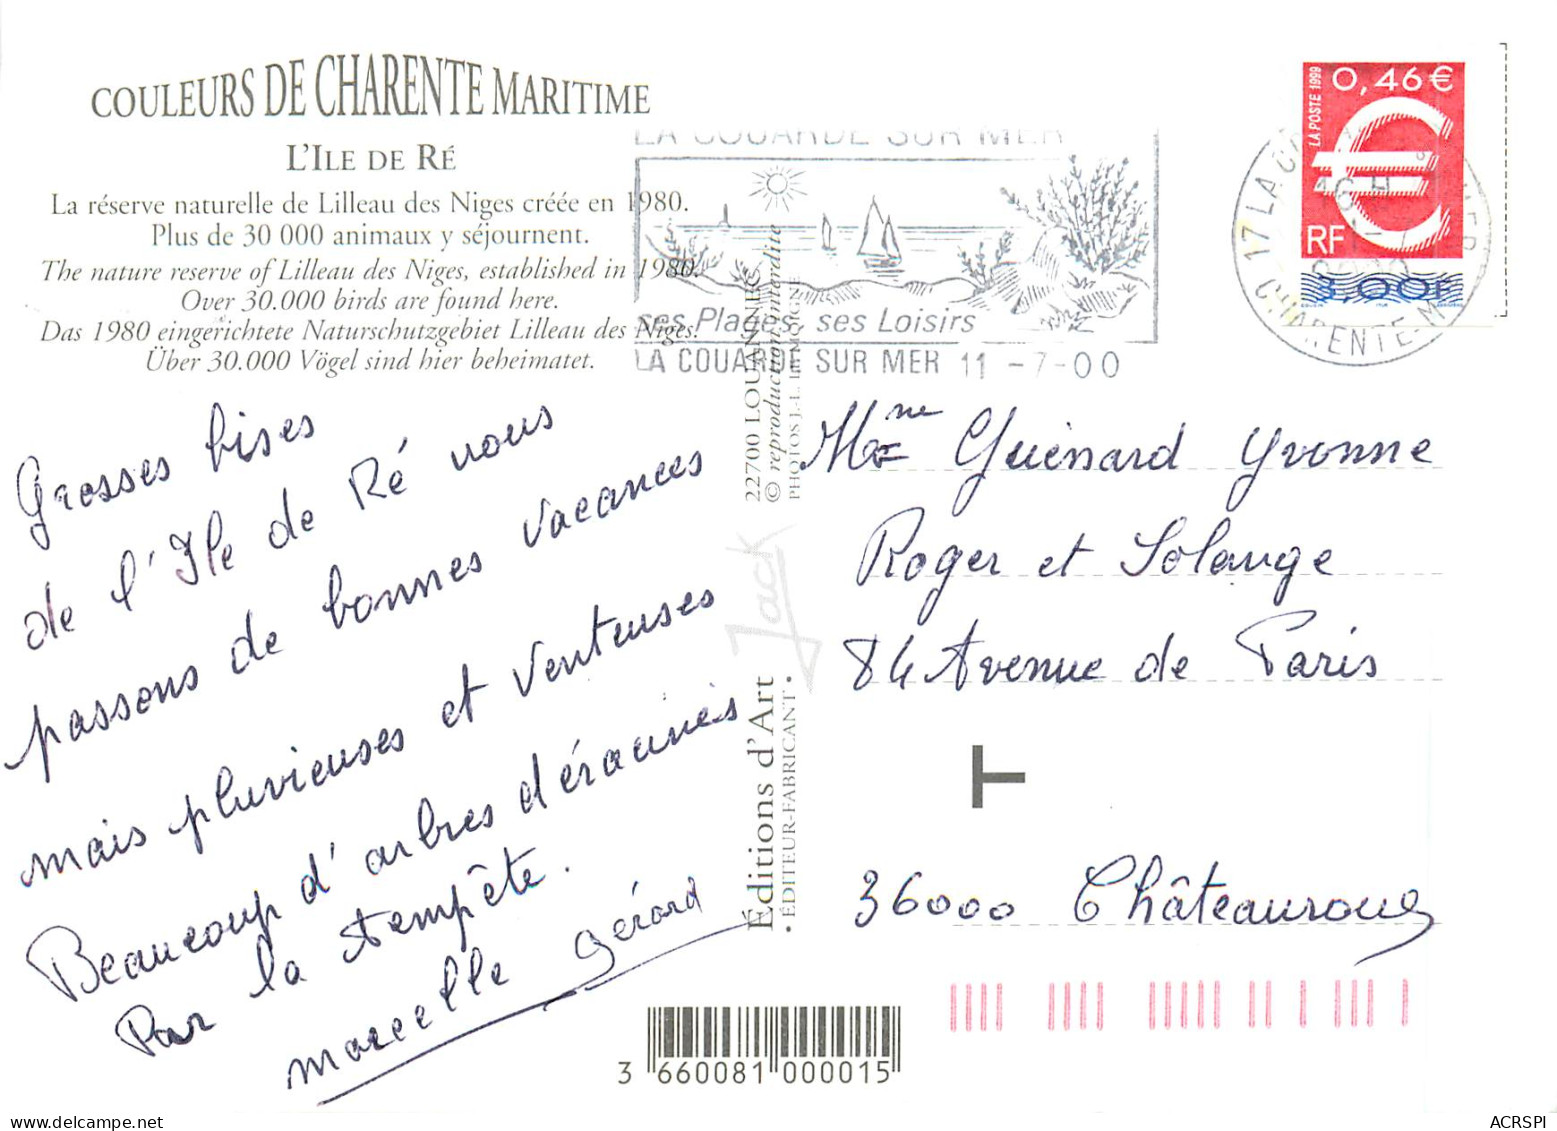 COULEURS DE CHARENTE MARITIME
L'ILE DE RÉ
La réserve naturelle de Lilleau des Niges créée en 1980.
Plus de 30 000 animaux y séjournent.
The nature reserve of Lilleau des Niges, established in 1980.
Over 30.000 birds are found here.
Das 1980 eingerichtete Naturschutzgebiet Lilleau des Niges.
Über 30.000 Vögel sind hier beheimatet.
LA COUARDE SUR MER
ses Plages ses Loisirs
LA COUARDE SUR MER 11 -7-00
LA POSTE 1999
0,46 €
€
RF
3,00F
17 LA CO
CHARENTE-M
Grosses bises
de l'Ile de Ré nous
passons de bonnes vacances
mais pluvieuses et venteuses
Beaucoup d'arbres déracinés
Par la tempête.
Marcelle Gérard
Éditions d'Art Jack
• ÉDITEUR-FABRICANT •
22700 LOUANNEC
© reproduction interdite
Mme Guénard Yvonne
Roger et Solange
84 Avenue de Paris
T
36000 Châteauroux
3 660081 000015
ACRSPI